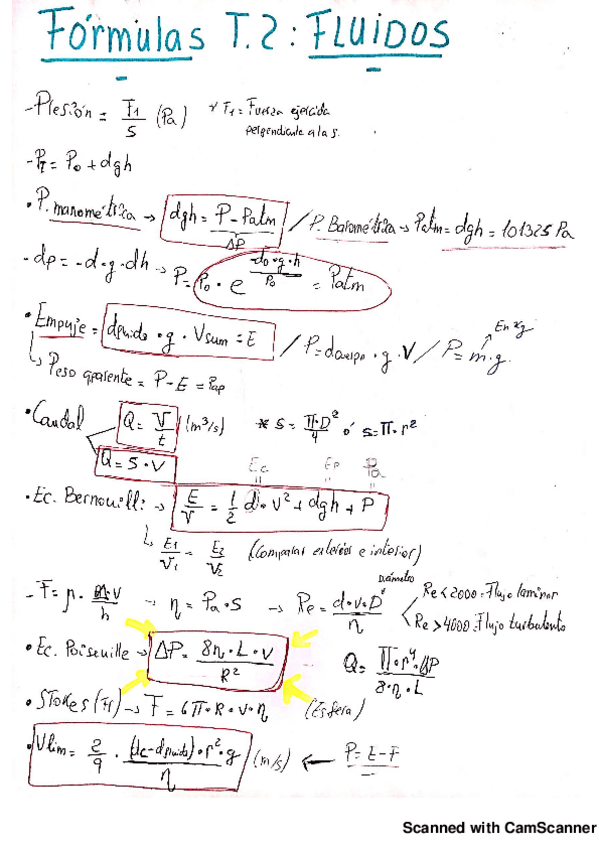 Fórmulas T.2: FLUIDOS
-Presión = F⊥/S (Pa) * F⊥ = Fuerza ejercida
perpendicular a la s.
-P_T = P₀ + dgh
• P. manométrica → dgh = P - Patm / P. Barométrica → Patm = dgh = 101325 Pa
ΔP
- dp = -d·g·dh → P = P₀ · e^(-d₀·g·h/P₀) = Patm
• Empuje = dfluido · g · Vsum = E / P = dcuerpo · g · V / P = m·g.
En Kg
↳ Peso aparente = P - E = Pap
• Caudal Q = V/t (m³/s) * S = π·D²/4 ó S = π·r²
Q = S·V
Ec Ep Pa
• Ec. Bernouilli → E/V = 1/2 d·v² + dgh + P
↳ E1/V1 = E2/V2 (Comparar exterior e interior)
Diámetro
Re < 2000 = Flujo laminar
→ η = Pa·s → Re = d·v·D/η
Re > 4000 = Flujo turbulento
• Ec. Poiseuille → ΔP = 8η·L·v/R² Q = π·r⁴·ΔP/8·η·L
• Stokes (Fr) → F = 6π·R·v·η (Esfera)
• Vlim = 2/9 · (dc - dfluido)·r²·g/η (m/s) ← P = E - F
Scanned with CamScanner